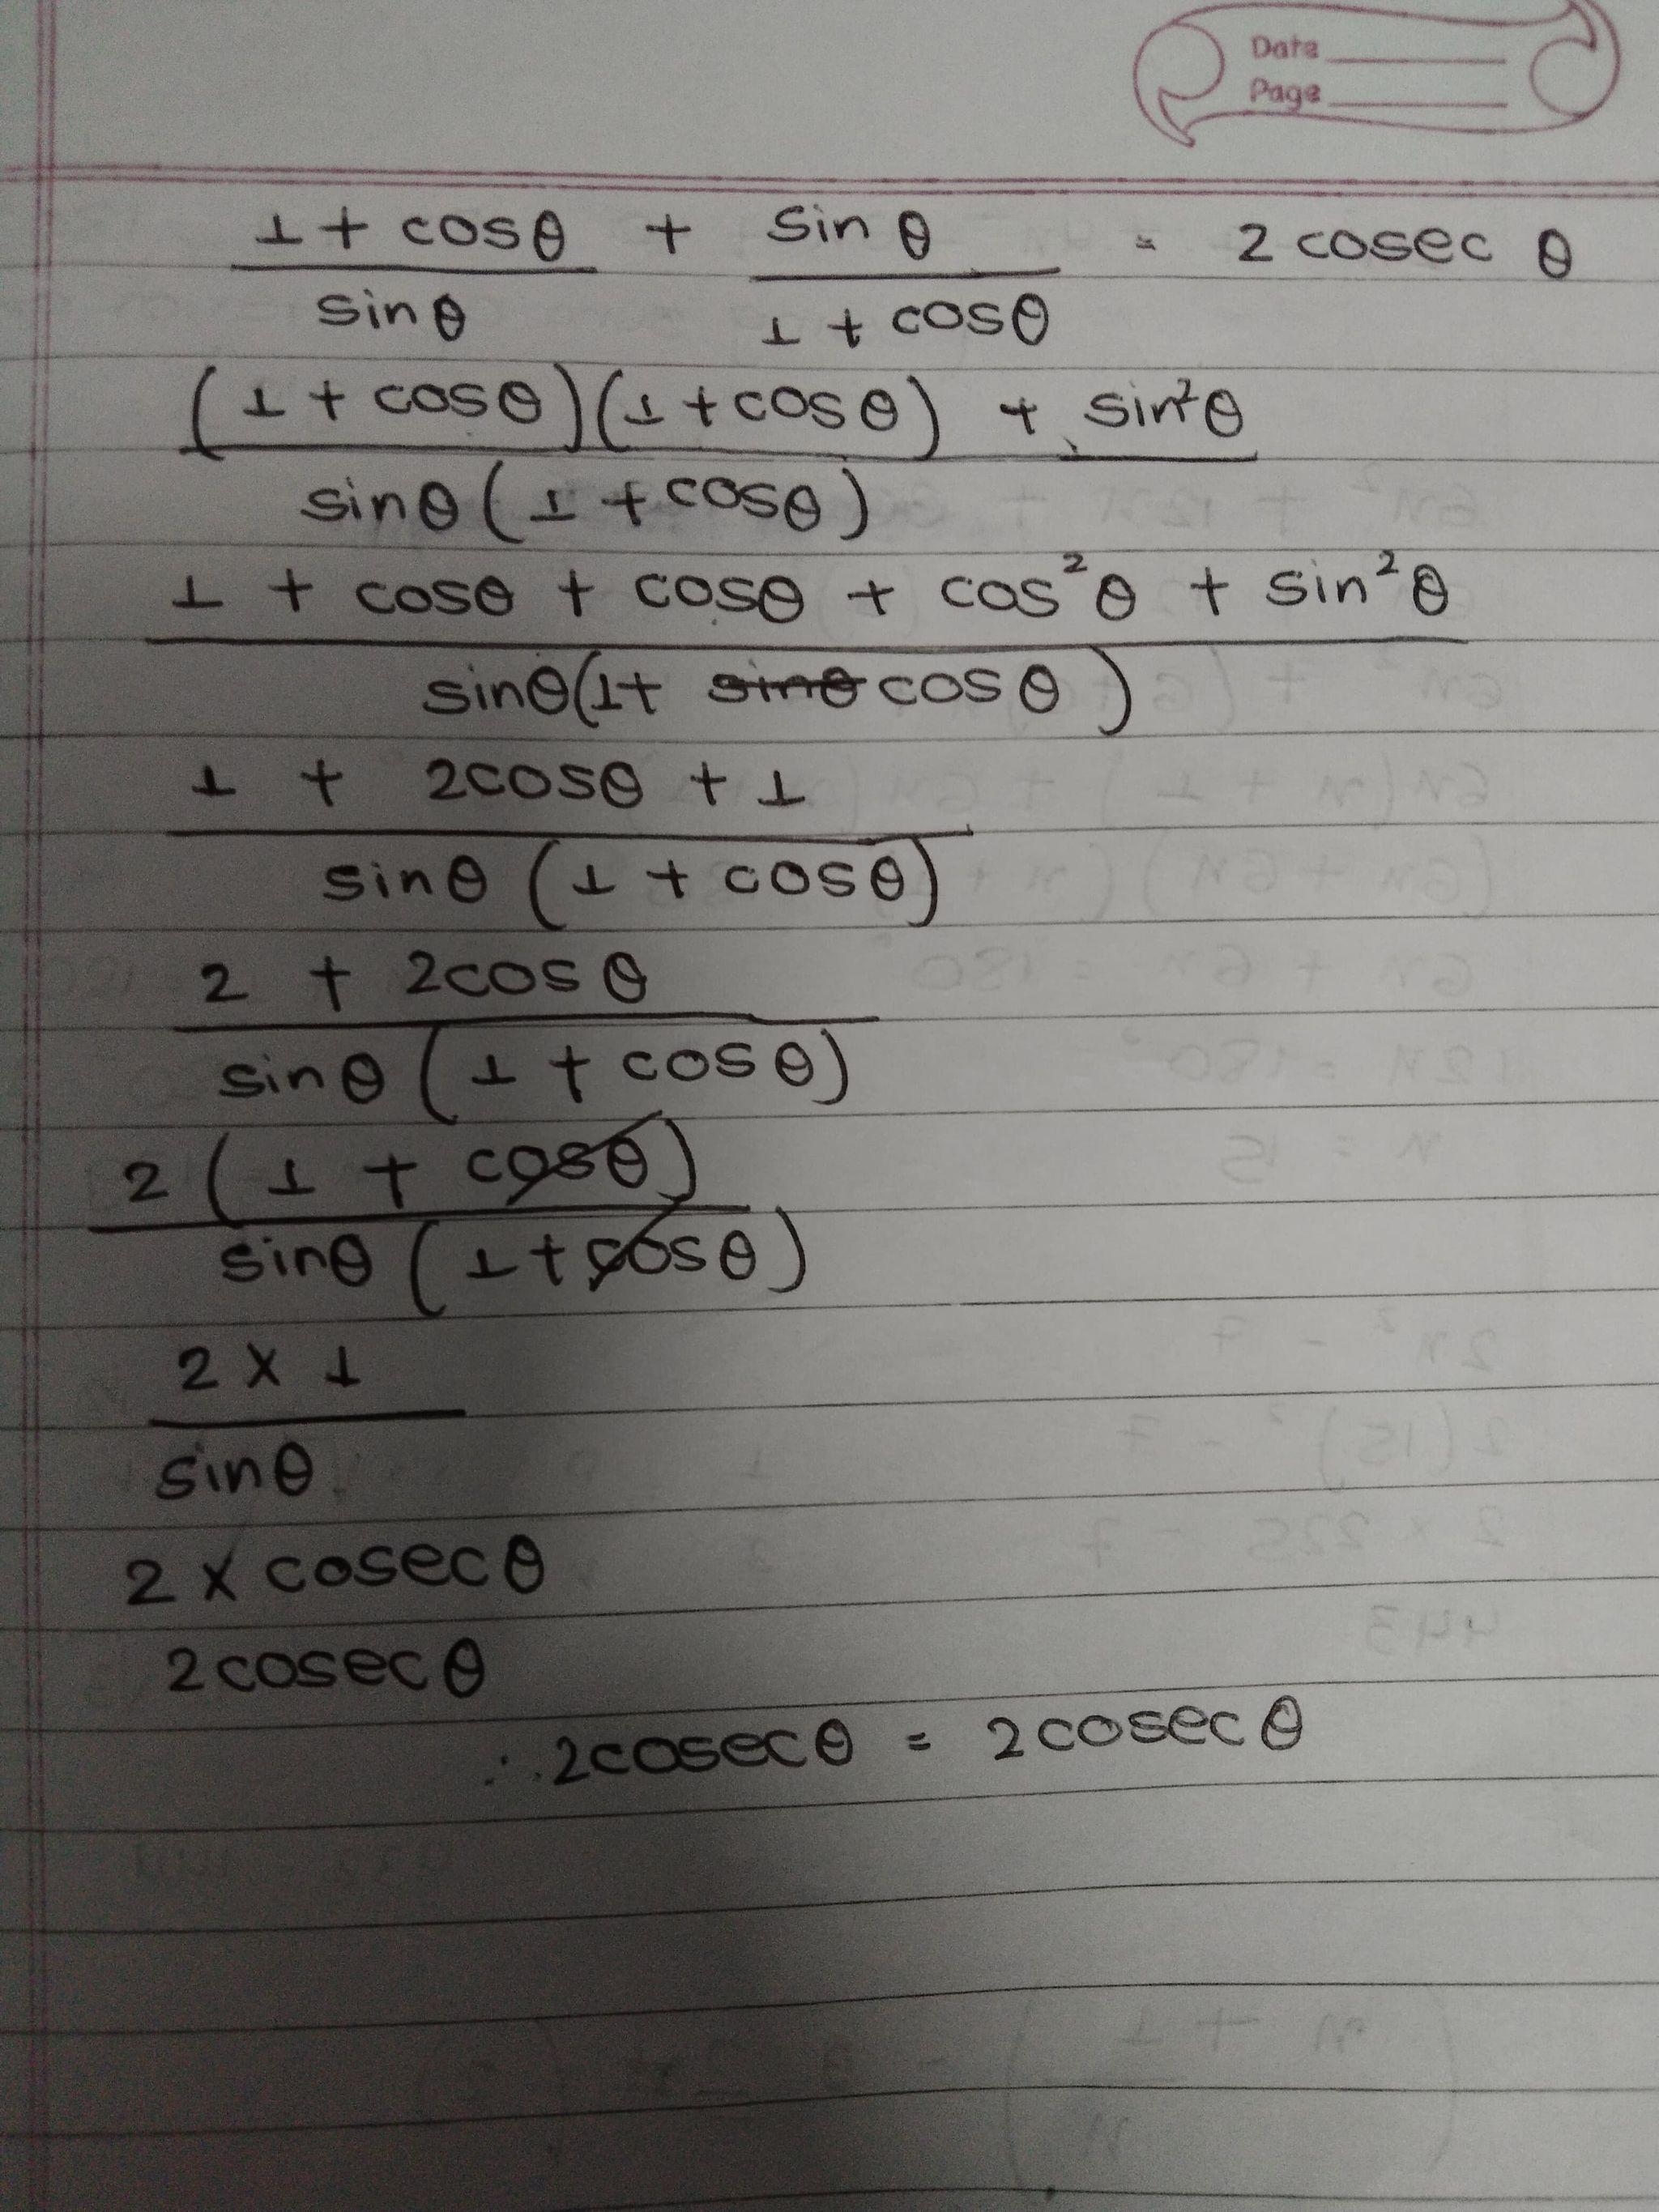 Date
Page
1 + cosθ + sin θ = 2 cosec θ
sinθ 1 + cosθ
(1 + cosθ)(1 + cosθ) + sin²θ
sinθ (1 + cosθ)
1 + cosθ + cosθ + cos²θ + sin²θ
sinθ(1+ sinθ cosθ)
1 + 2cosθ + 1
sinθ (1 + cosθ)
2 + 2cosθ
sinθ (1 + cosθ)
2 (1 + cosθ)
sinθ (1+cosθ)
2 x 1
sinθ
2 x cosecθ
2cosecθ
∴ 2cosecθ = 2cosecθ